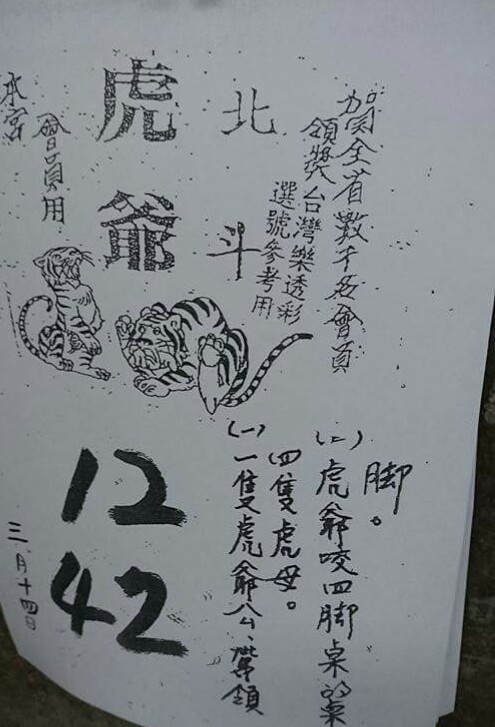 賀全省數千名會員
領獎台灣樂透彩
選號參考用
北斗
虎爺
本宮
會員用
(一)一隻虎爺公、帶領
四隻虎母。
(二)虎爺咬四脚桌的桌
脚。
12
42
三月十四日